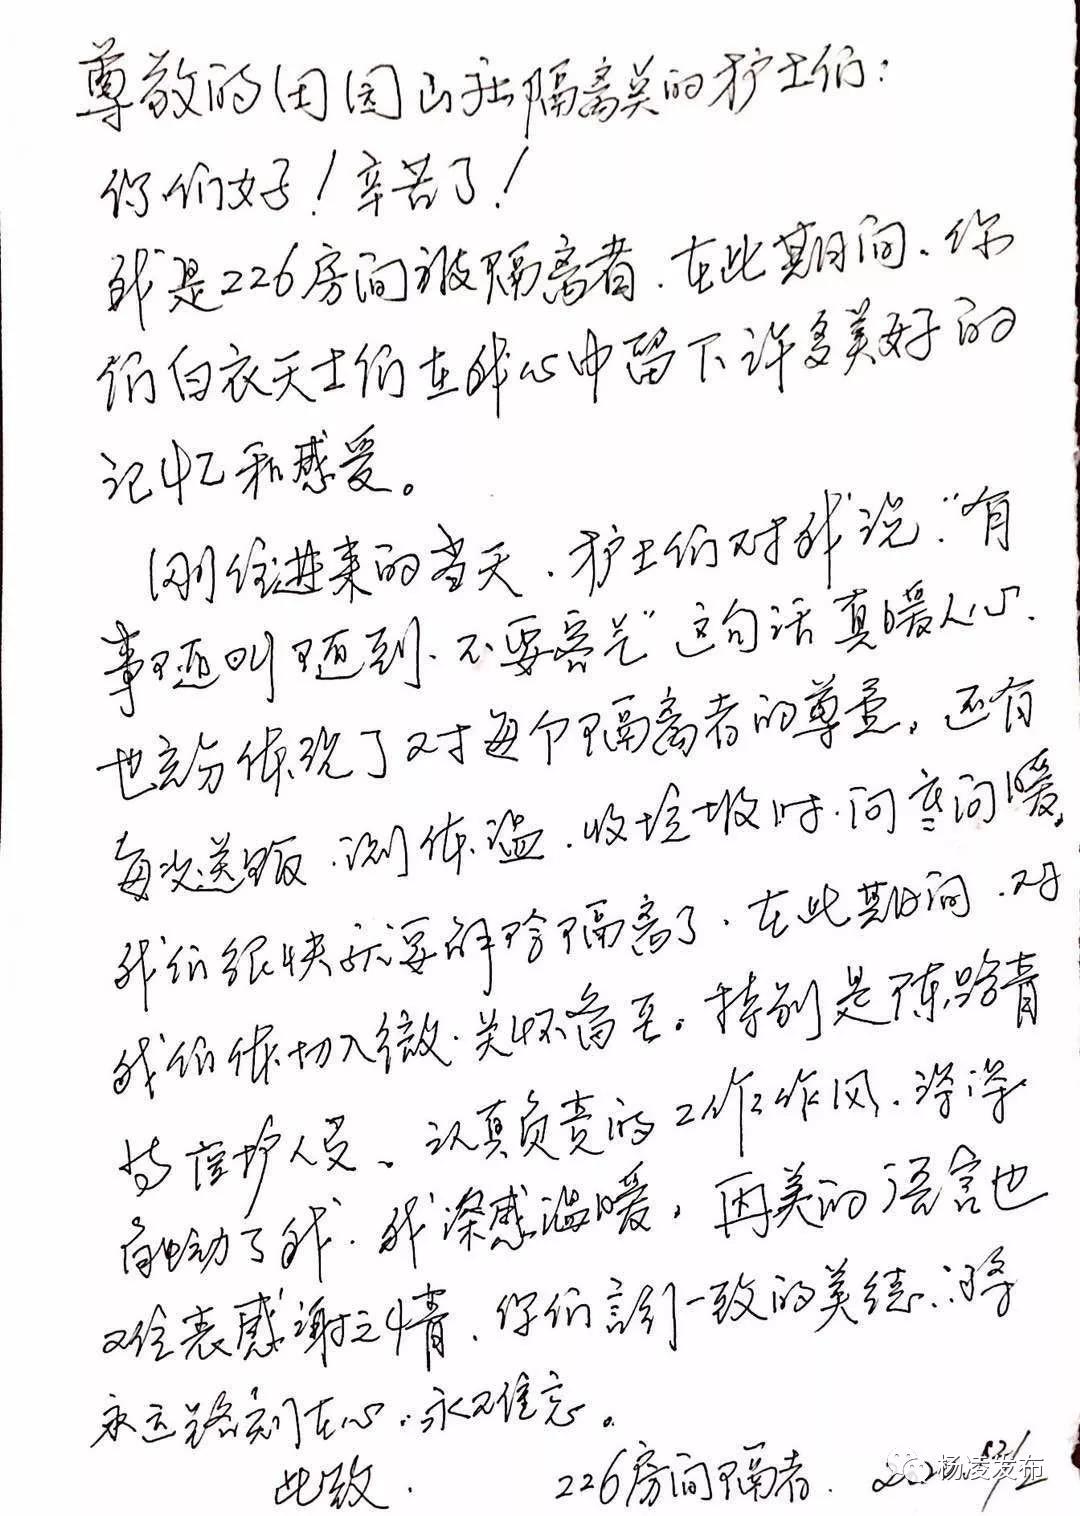 尊敬的田园山社隔离点的护士们：
你们好！辛苦了！
我是226房间被隔离者．在此期间、你
们白衣天士们在我心中留下许多美好的
记忆和感受。
刚住进来的当天．护士们对我说“有
事随叫随到．不要客气”这句话真暖人心．
也充分体现了对每个隔离者的尊重，还有
每次送饭．测体温．收垃圾时．问寒问暖，
我们很快就要解除隔离了．在此期间．对
我们体切入微．关怀备至。特别是陈
护人员、认真负责的工作作风．深深
触动了我．我深感温暖，再美的语言也
难表感谢之情．你们言行一致的美德．将
永远铭刻在心．永不难忘。
此致．
226房间隔离者．
杨凌发布